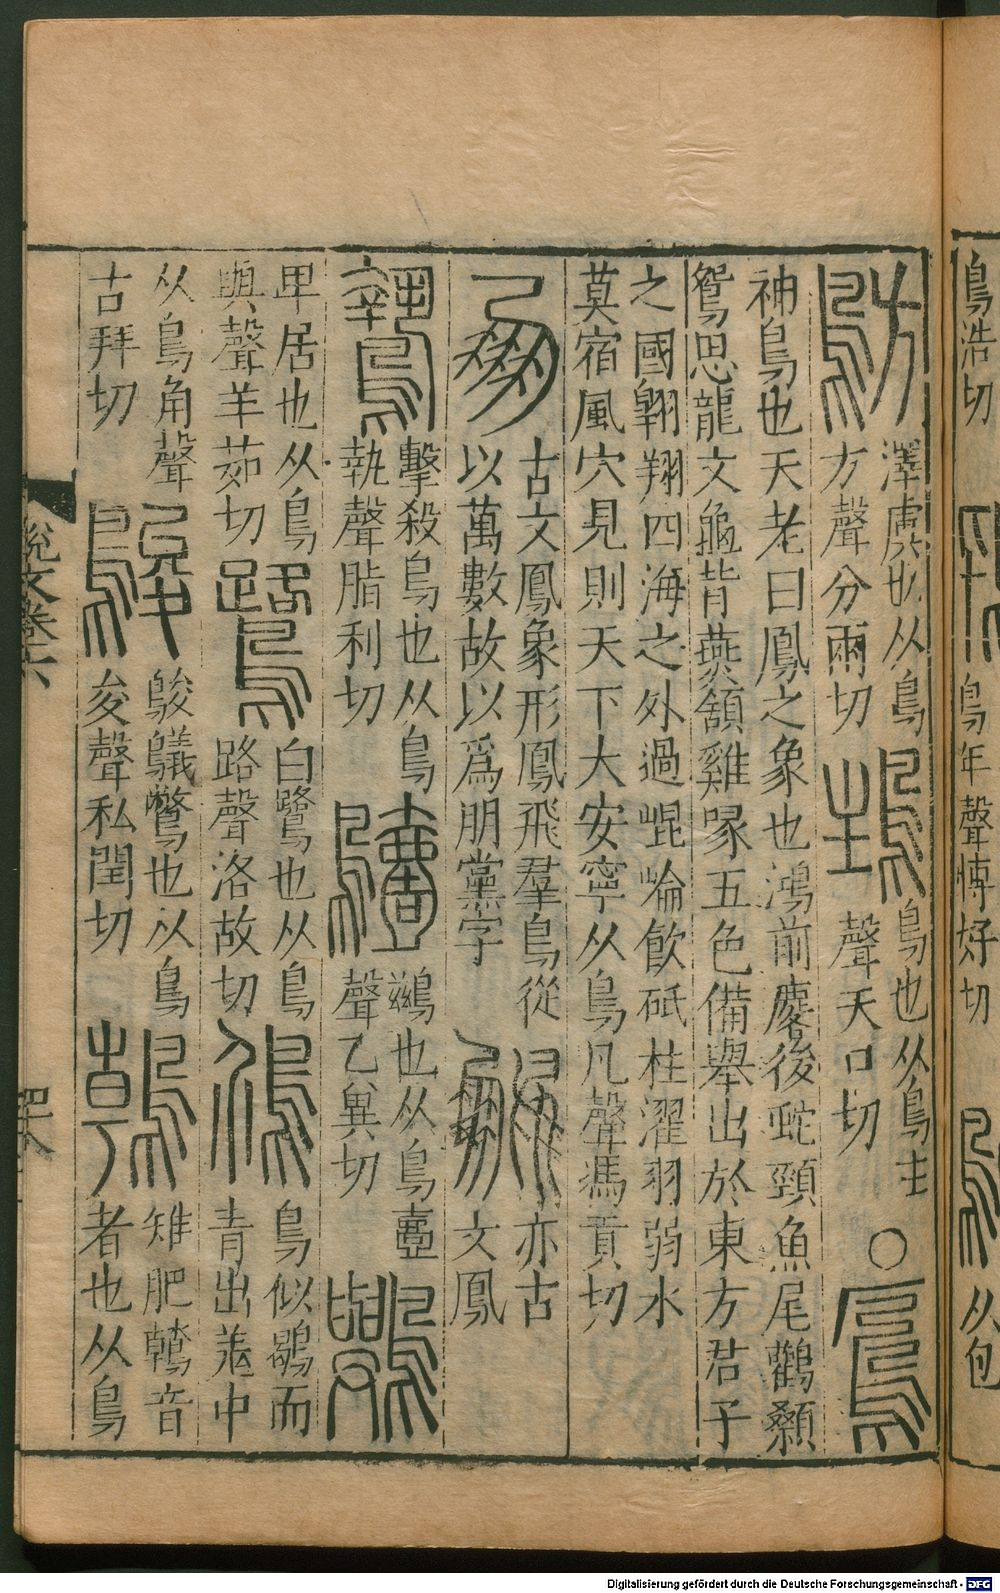 鳥浩切 鴇 鳥𠦒聲博好切 鮑 从包
鴋 澤虞也从鳥 䳠 鳥也从鳥主 ○ 鳳
方聲分兩切 聲天口切
神鳥也天老曰鳳之象也鴻前麐後蛇頸魚尾鸛顙
鴛思龍文龜背燕頷雞喙五色備舉出於東方君子
之國翺翔四海之外過崐崘飮砥柱濯羽弱水
莫宿風穴見則天下大安寧从鳥凡聲馮貢切
朋 古文鳳象形鳳飛羣鳥從 鵬 亦古
以萬數故以爲朋黨字 文鳳
鷙 擊殺鳥也从鳥 鷧 鷀也从鳥壹 鸒
執聲脂利切 聲乙異切
卑居也从鳥 鷺 白鷺也从鳥 䲸 鳥似鶡而
與聲羊茹切 路聲洛故切 青出羗中
从鳥角聲 鵔 鵔鸃鷩也从鳥 鶾 雉肥鶾音
古拜切 夋聲私閏切 者也从鳥
說文卷六
Digitalisierung gefördert durch die Deutsche Forschungsgemeinschaft - DFG